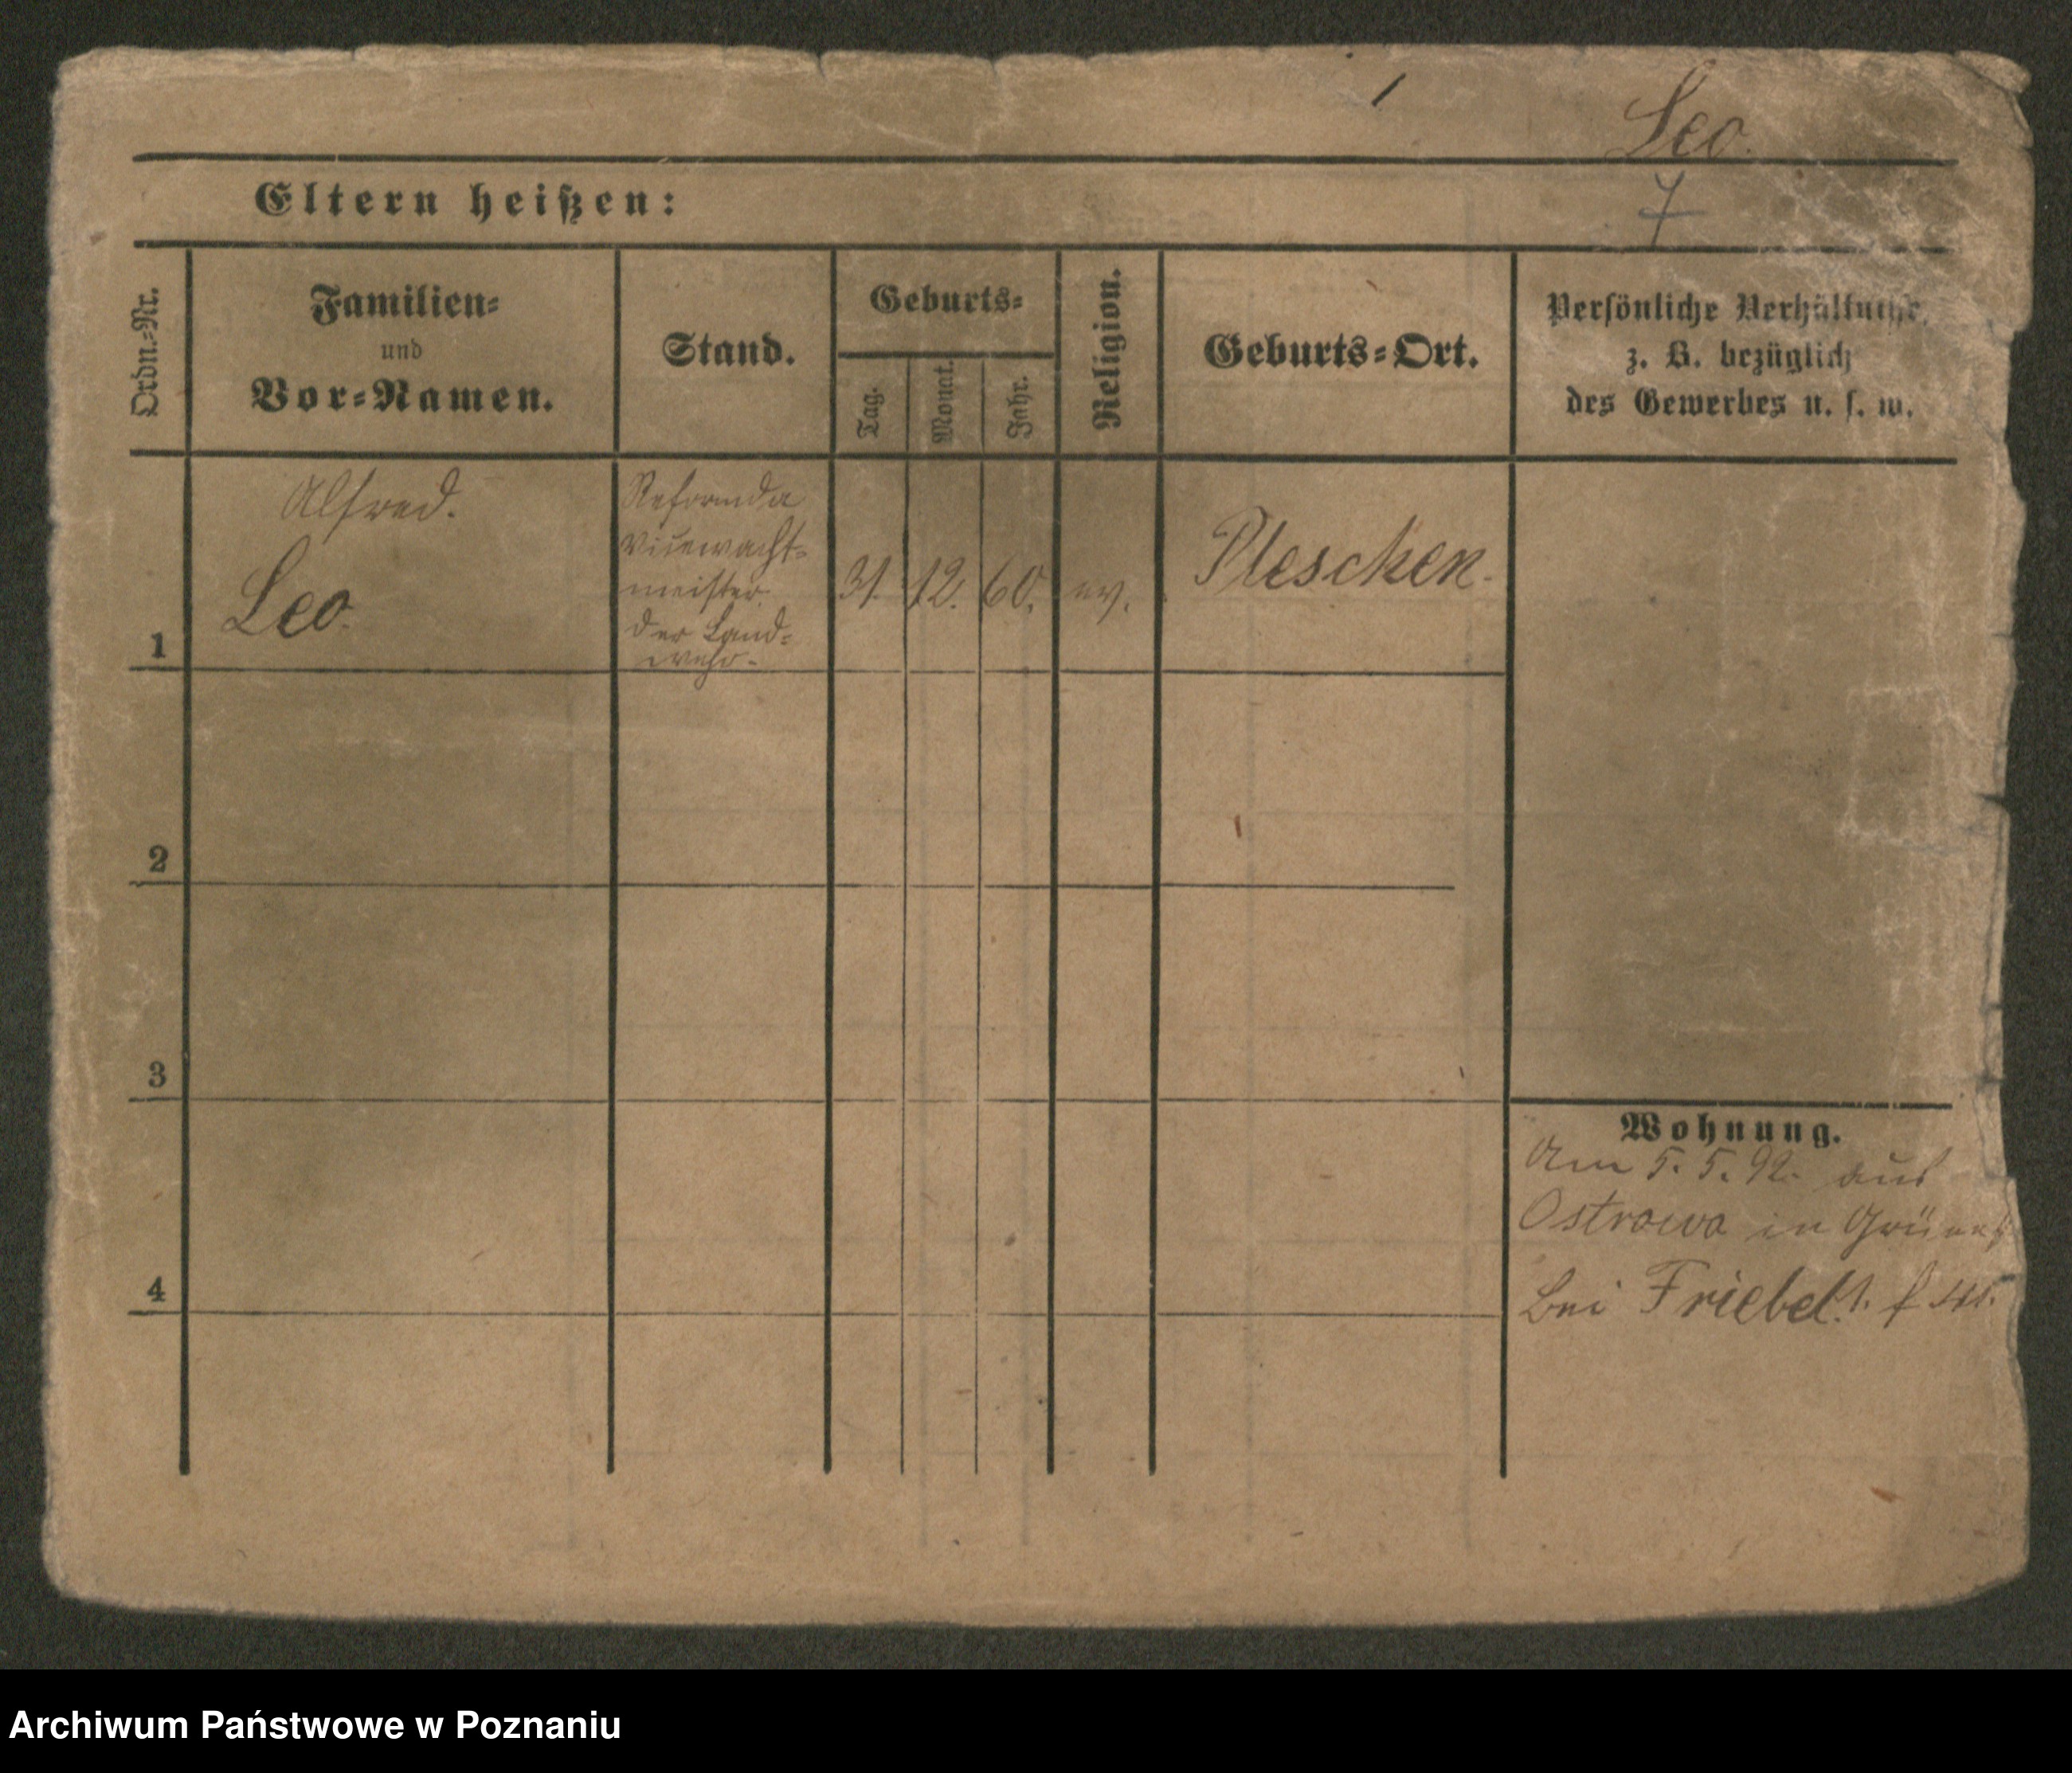 1
Leo.
Eltern heißen:
7
Ordn.-Nr.
Familien-
und
Vor-Namen.
Stand.
Geburts-
Tag.
Monat.
Jahr.
Religion.
Geburts-Ort.
Persönliche Verhältnisse,
z. B. bezüglich
des Gewerbes u. s. w.
1
Alfred.
Leo.
Vicewacht-
meister
der Land-
wehr.
31.
12.
60.
ev.
Pleschen.
2
3
4
Wohnung.
Am 5. 5. 92. aus
Ostrowo in
bei Friebel
Archiwum Państwowe w Poznaniu